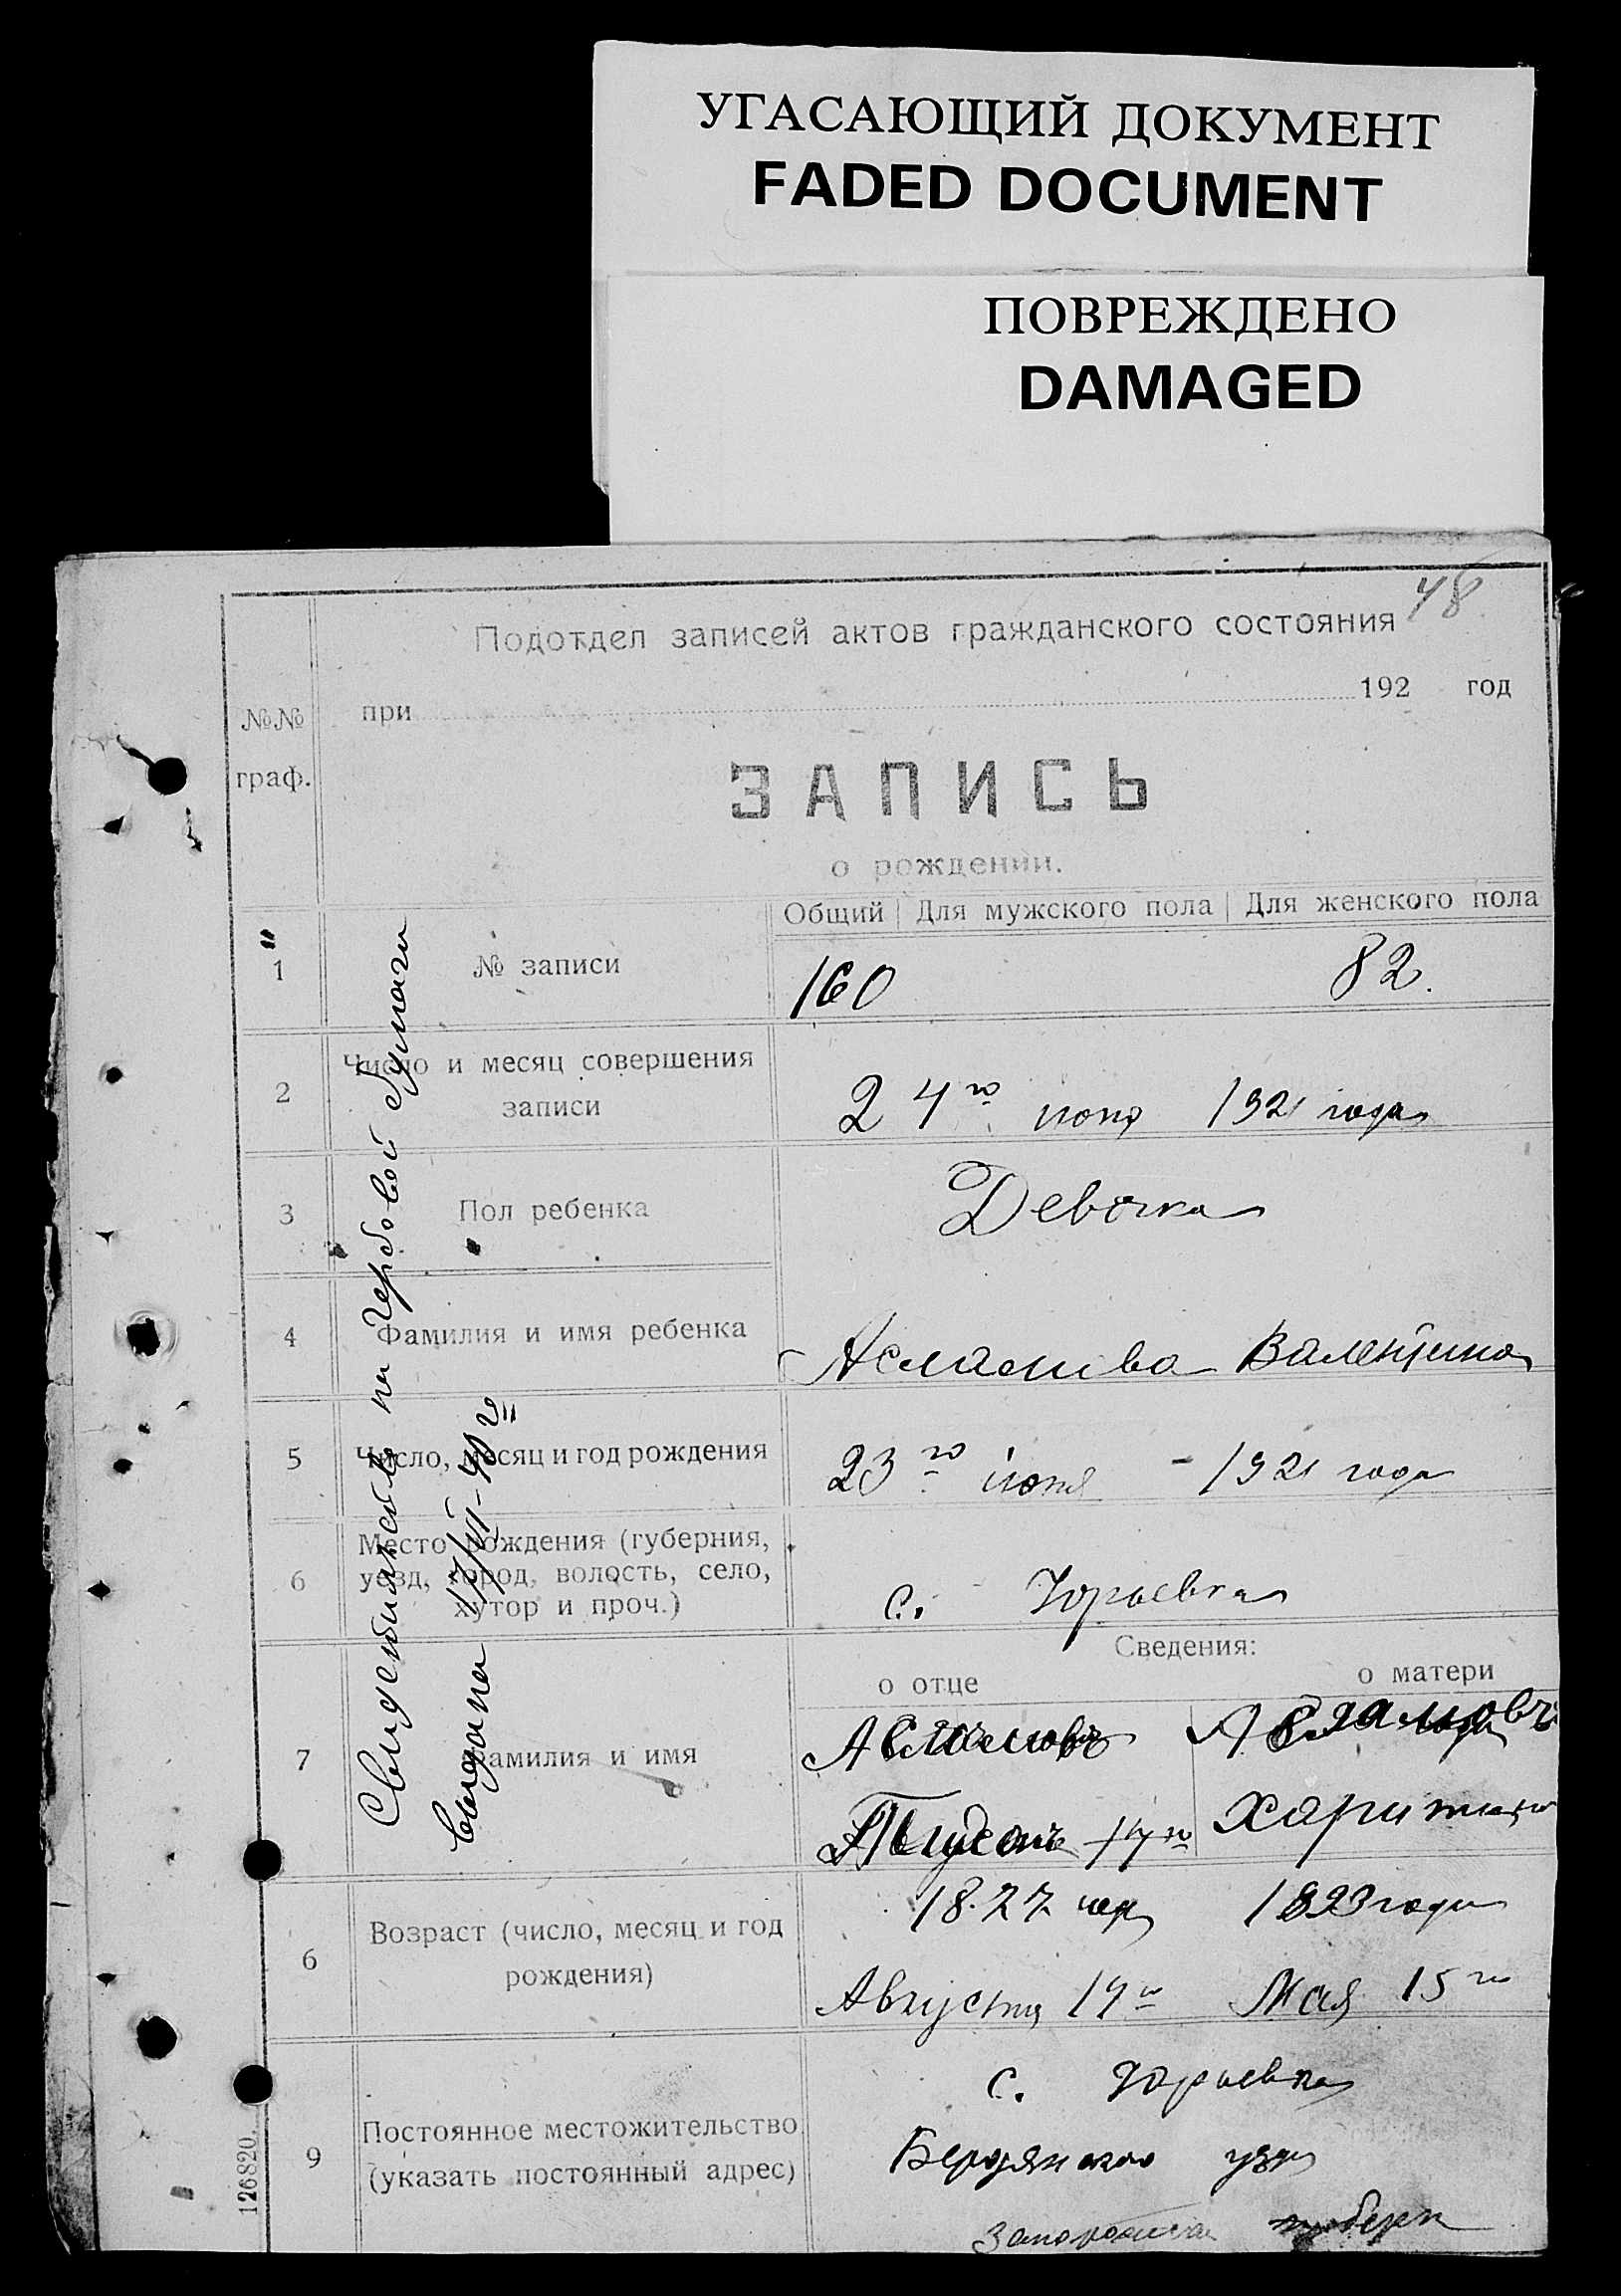 УГАСАЮЩИЙ ДОКУМЕНТ
FADED DOCUMENT
ПОВРЕЖДЕНО
DAMAGED
48
Подотдел записей актов гражданского состояния
при 192 год
№№
граф.
ЗАПИСЬ
о рождении.
Общий Для мужского пола Для женского пола
1 № записи 160 82.
2 Число и месяц совершения
записи
24го июня 1921 года
3 Пол ребенка Девочка
4 Фамилия и имя ребенка Асланова Валентина
5 Число, месяц и год рождения 23го июня - 1921 года
6 Место рождения (губерния,
уезд, город, волость, село,
хутор и проч.)
с. Юрьевка
Сведения:
о отце о матери
7 Фамилия и имя
Харитина
6 Возраст (число, месяц и год
рождения)
1893 года
Августа 19го Мая 15го
9 Постоянное местожительство
(указать постоянный адрес)
с. Юрьевка
Бердянского уезда
126820.
Свидетельство на гербовой бумаге
выдано 17/VII-40 г.